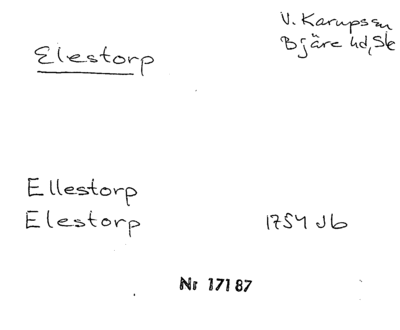 V. Karups sn
Bjäre hd, Sk
Elestorp
Ellestorp
Elestorp 1754 Jb
Nr 17187